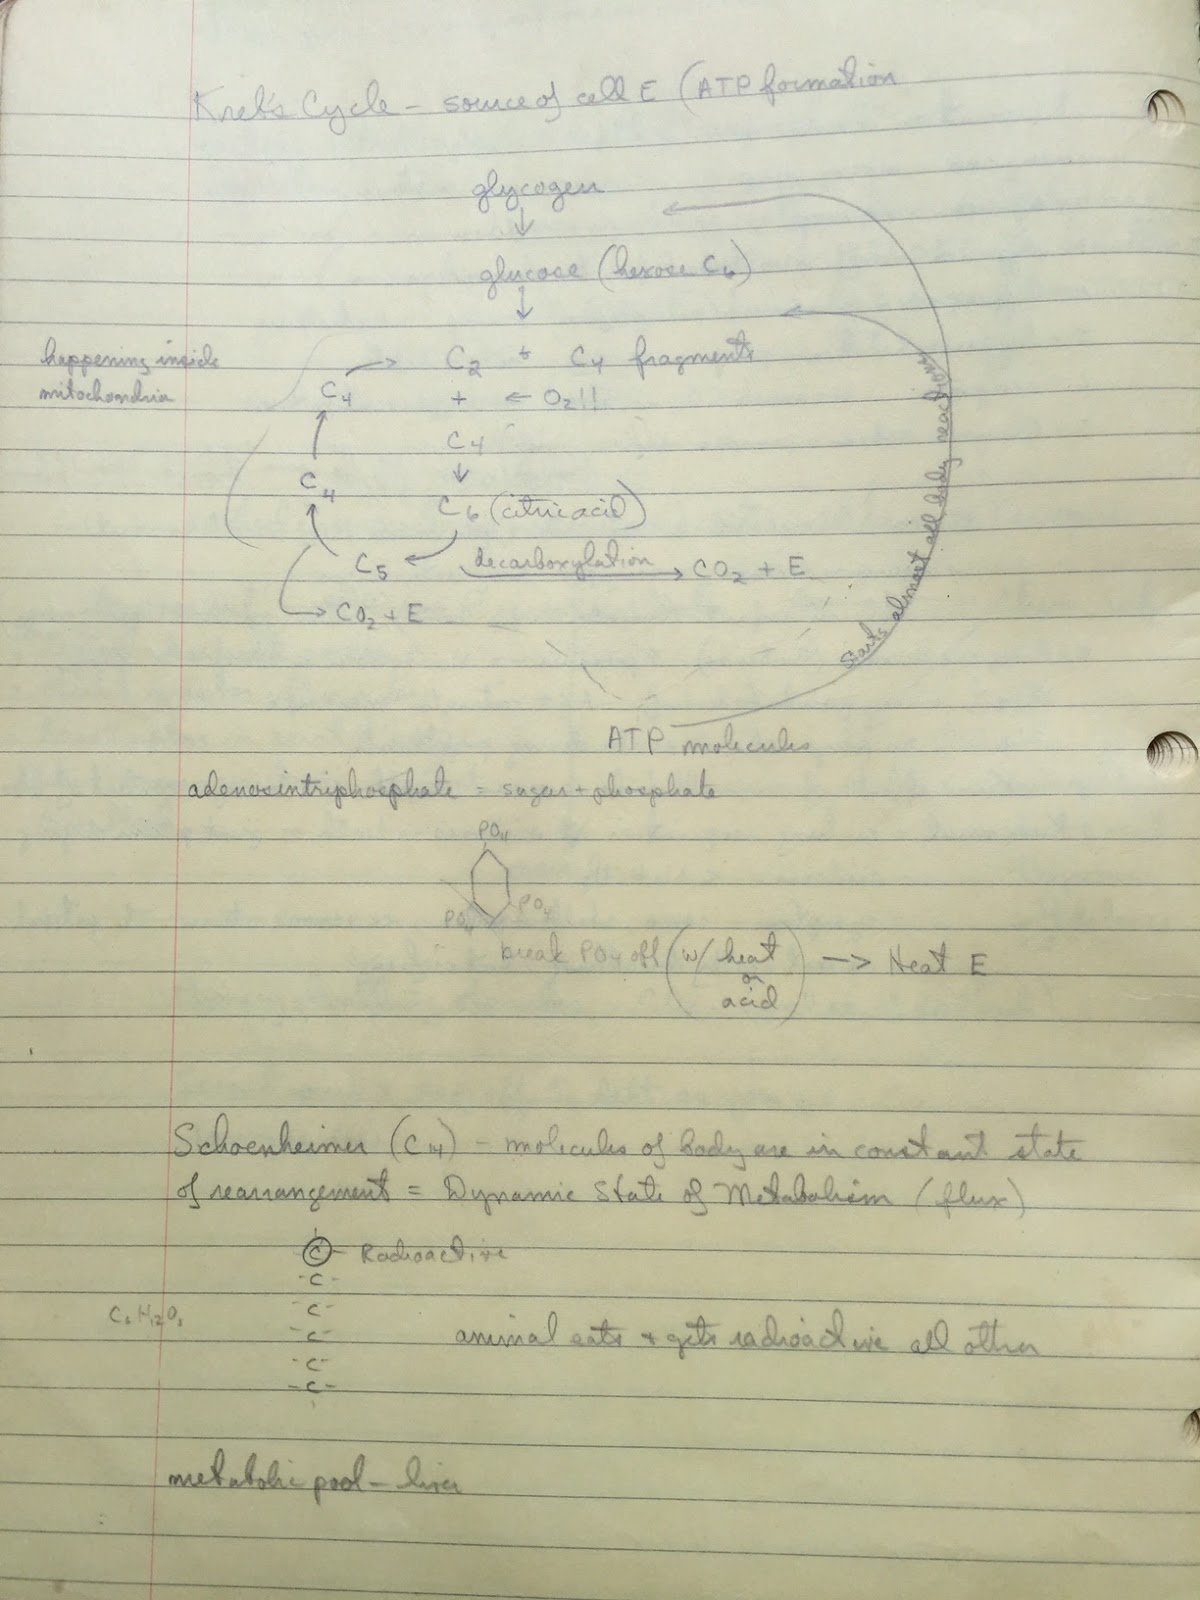 Kreb's Cycle – source of cell E (ATP formation
glycogen
↓
glucose (hexose C6)
↓
happening inside
mitochondria
C2 + C4 fragments
C4 → + ← O2!!
C4
↓
C4
C6 (citric acid)
C5 ← decarboxylation → CO2 + E
→ CO2 + E
Starts almost all body reactions
ATP molecules
adenosintriphosphate = sugar + phosphate
PO4
PO4 PO4
break PO4 off (w/ heat or acid) → Heat E
Schoenheimer (C14) – molecules of body are in constant state
of rearrangement = Dynamic State of Metabolism (flux)
C – Radioactive
-C-
-C-
-C- animal eats + gets radioactive all other
-C-
-C-
metabolic pool – liver